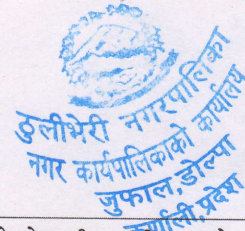 ठुलीभेरी नगरपालिका
नगर कार्यपालिकाको कार्यालय
जुफाल, डोल्पा
कर्णाली, प्रदेश